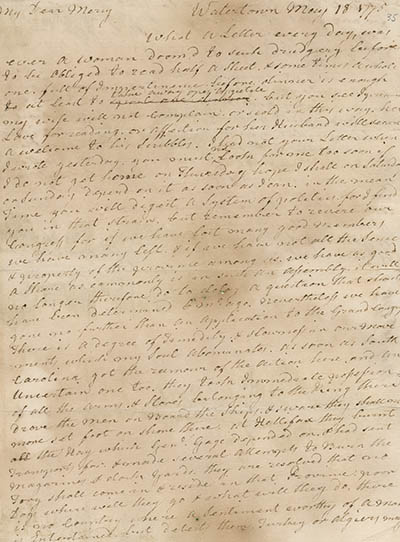 My Dear Mercy Watertown May 18 1775
35
What a Letter every day, was
ever a woman doom'd to such drudgery before
to be obliged to read half a sheet & some times a whole
one, full of Impertinence before dinner is enough
to at least to but you see by
my wife will not complain, or scold in this way, her
Love for reading, or affection for her Husband will secure
a welcome to his scribbles. had not your Letter when
I wrote yesterday, you must Look for me too soon, if
I do not get home on Thursday hope I shall on Saturday
or Sunday, depend on it as soon as I can, in the mean
Time you will digest a System of politics, for I find
you in that strain, but remember to revere our
Congress for if we have lost many good members
we have many left, & if we have not all the Sense
& property of the province among us, we have as good
a Share as commonly is in such an assembly, I will
no longer therefore, do to delay a question that should
have been determined ages ago. Nevertheless we have
gone no further than an Application to the Grand Congress
There is a degree of timidity & slowness in our move
ments, which my Soul Abominates. as soon as South
Carolina got the rumour of the action here and an
Uncertain one too, they took Immediate possession
of all the Arms & Stores belonging to the King there
drove the men on board the ships, & swore they shall no
more set foot on shore there. at Hallifax they burnt
all the Hay which Genl. Gage depended on, & had sent
Transports for & made several Attempts to Burn the
magazines & dock yards. they are resolved that no
Tory shall come & reside in that Province. poor
Dogs where will they go & what will they do, there
is no Country where a Sentiment worthy of a Man
is Entertained but detests them Turkey or Algiers may